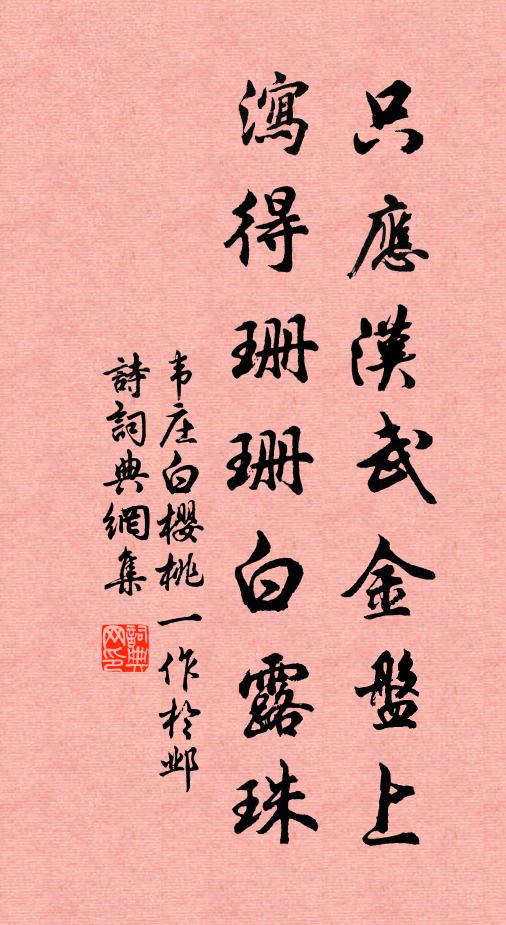 只應漢武金盤上
瀉得珊珊白露珠
韦庄白櫻桃一作於邺
詩詞典網集
詞典网印